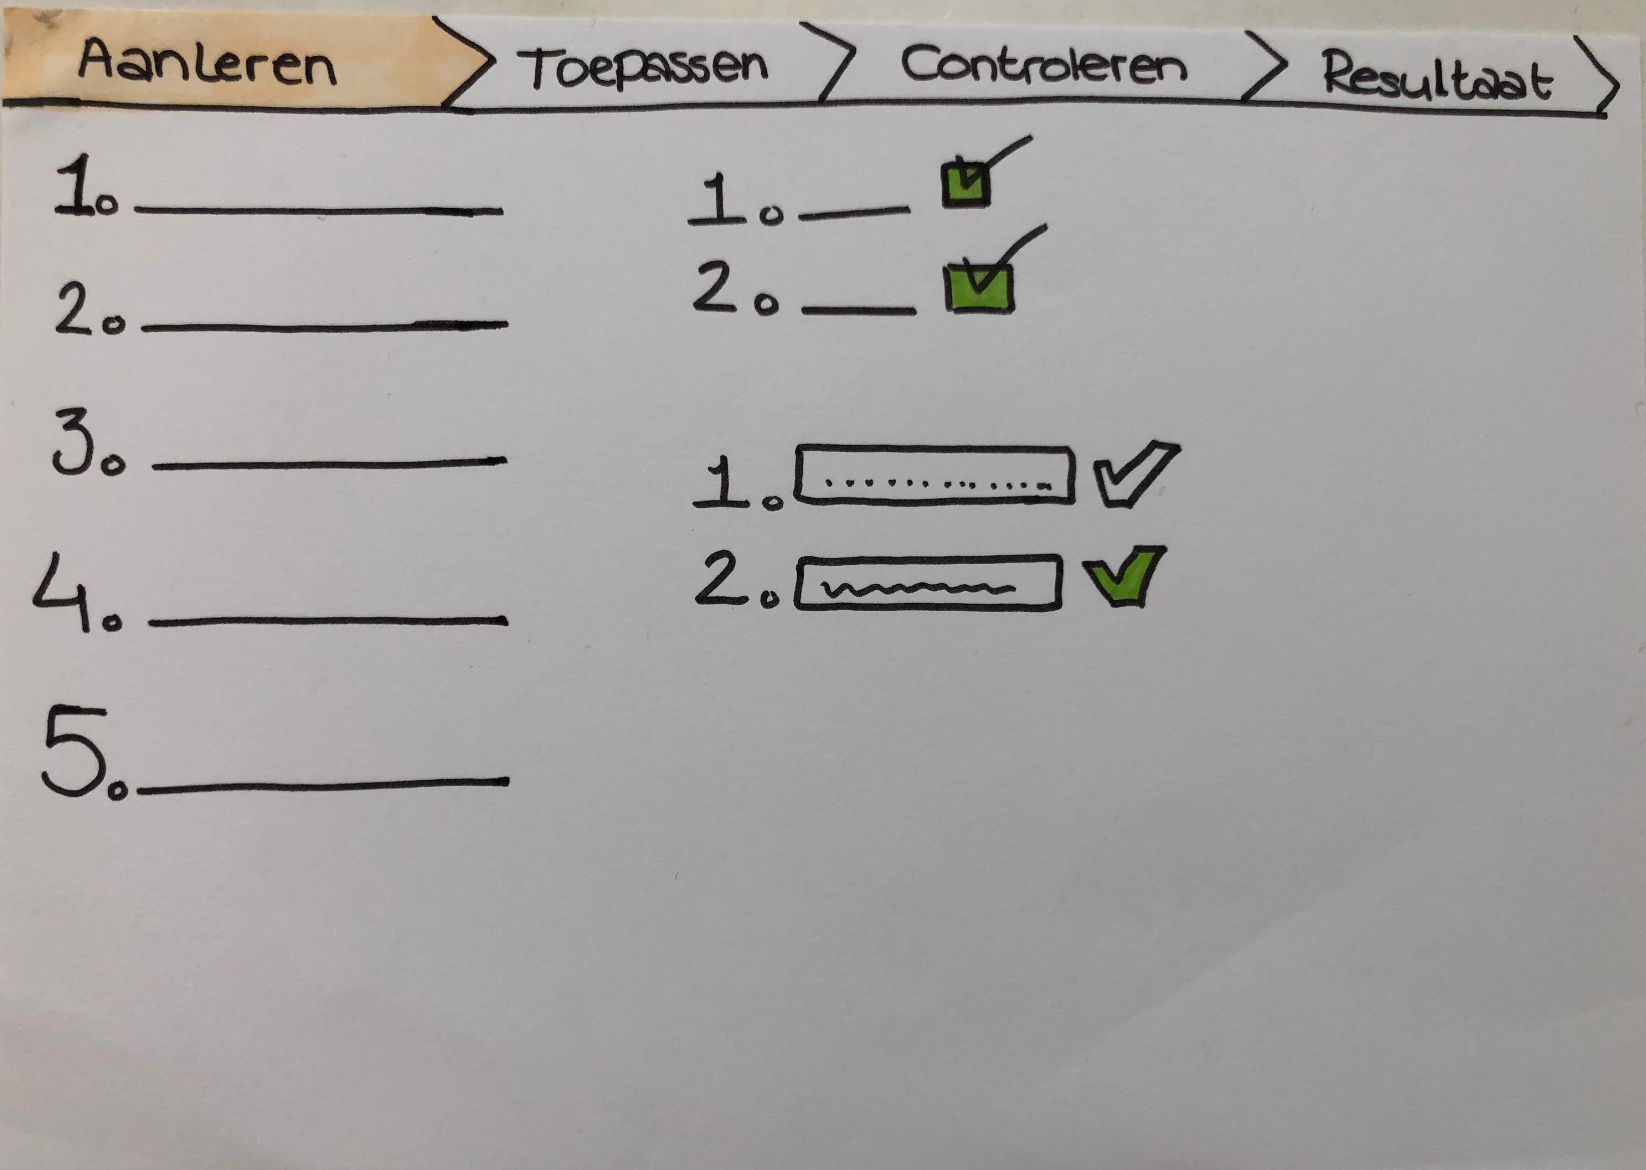 Aanleren Toepassen Controleren Resultaat
1.
2.
3.
4.
5.
1.
2.
1.
2.